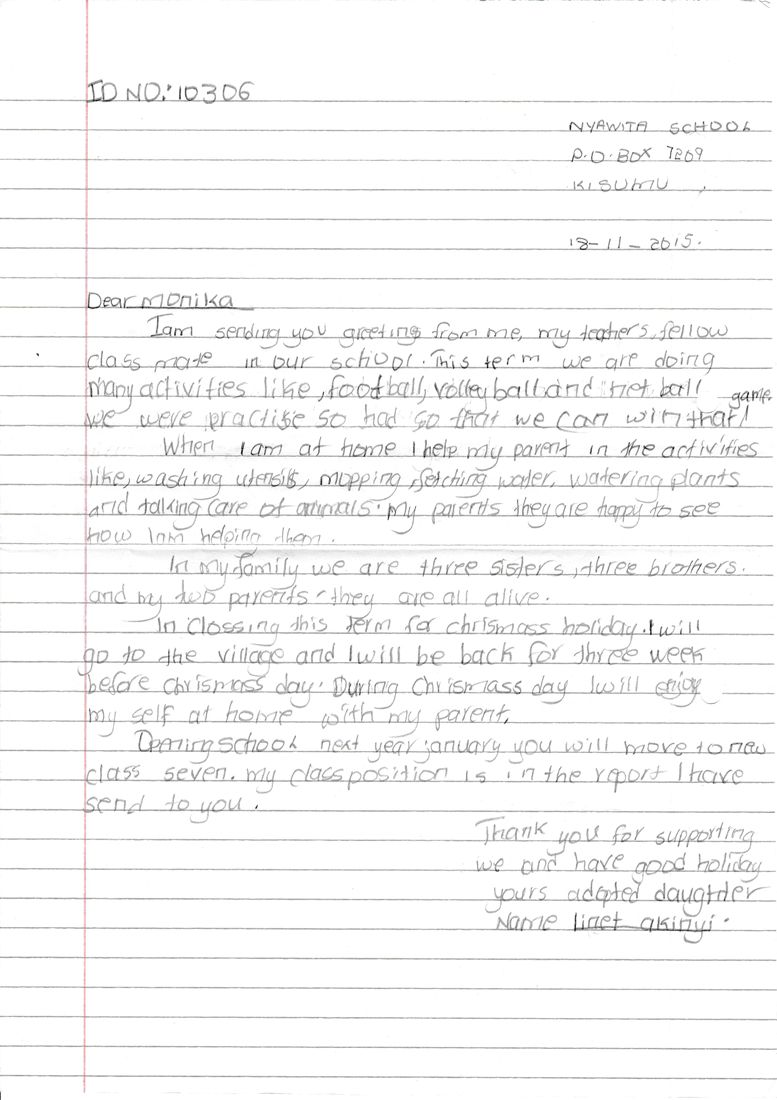 ID NO: 10306
NYAWITA SCHOOL
P.O. BOX 7209
KISUMU,
18-11-2015.
Dear Monika
Iam sending you greeting from me, my teachers, fellow
class mate in our school. This term we are doing
many activities like, football, volleyball and net ball game.
we were practise so had so that we can win that
When I am at home I help my parent in the activities
like, washing utensils, mopping, fetching water, watering plants
and talking care of animals. my parents they are happy to see
how Iam helping them.
In my family we are three sisters, three brothers.
and my two parents. they are all alive.
In clossing this term for chrismass holiday. I will
go to the village and I will be back for three week
before chrismass day. During Chrismass day I will enjoy
my self at home with my parent.
Opening school next year january you will move to new
class seven. my class position is in the report I have
send to you.
Thank you for supporting
we and have good holiday
yours adopted daugther
Name linet akinyi.